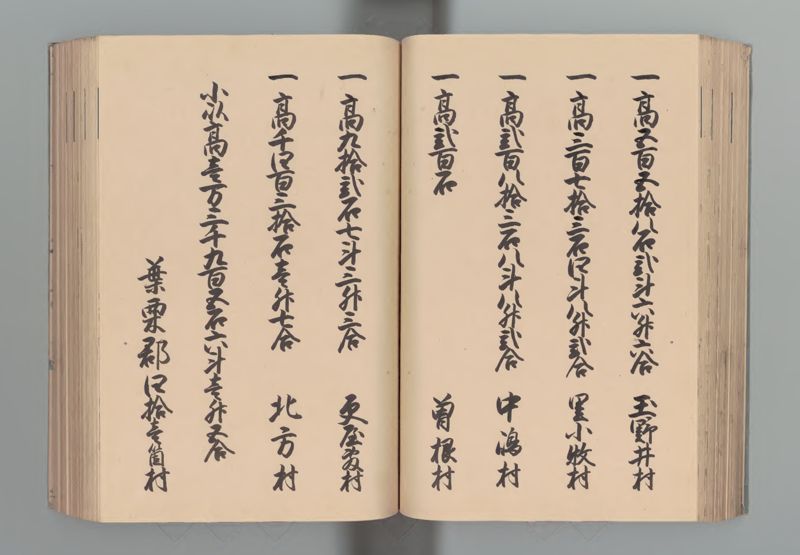 一高五百五拾八石弐斗六升六合　玉野井村
一高三百七拾三石四斗八升弐合　里小牧村
一高弐百八拾三石八斗八升弐合　中嶋村
一高弐百石　曽根村
一高九拾弐石七斗三升三合　更屋敷村
一高千四百三拾石壱升七合　北方村
小以高壱万三千九百五石六斗壱升五合
葉栗郡四拾壱箇村